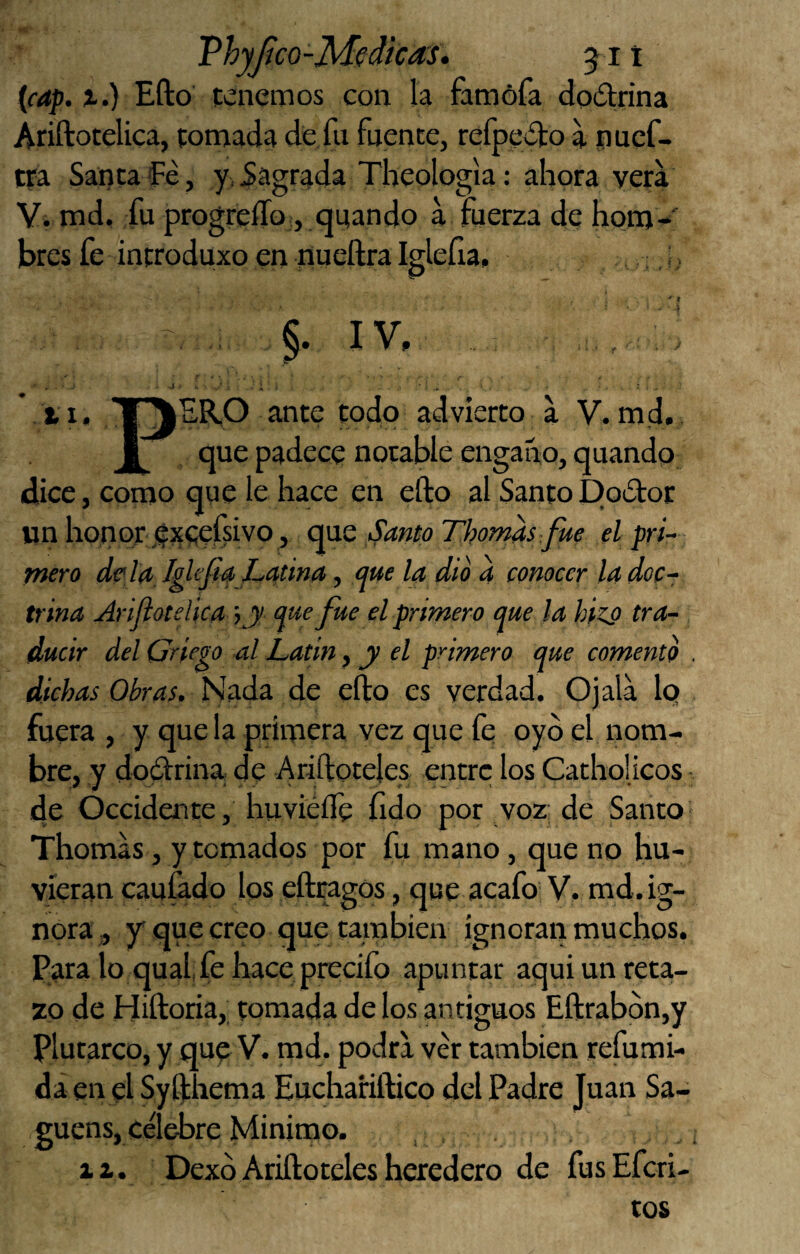 Phyſico-Medicas. 311
(cap. 2.) Eſto tenemos con la famòſa doctrina
Ariſtotelica, tomada de ſu fuente, reſpecto à nueſ-
tra Santa Fè, y Sagrada Theologìa: ahora verà
V. md. ſu progreſſo, quando à fuerza de hom-
bres ſe introduxo en nueſtra Igleſia.
§. IV.
21. PERO ante todo advierto à V. md.
que padece notable engaño, quando
dice, como que le hace en eſto al Santo Doctor
un honor exceſsivo, que Santo Thomàs fue el pri-
mero de la Igleſia Latina, que la diò à conocer la doc-
trina Ariſtotelica; y que fue el primero que la hizo tra-
ducir del Griego al Latin, y el primero que comentò
dichas Obras. Nada de eſto es verdad. Ojalà lo
fuera, y que la primera vez que ſe oyò el nom-
bre, y doctrina de Ariſtoteles entre los Catholicos
de Occidente, huvieſſe ſido por voz de Santo
Thomàs, y tomados por ſu mano, que no hu-
vieran cauſado los eſtragos, que acaſo V. md. ig-
nora, y que creo que tambien ignoran muchos.
Para lo qual ſe hace preciſo apuntar aqui un reta-
zo de Hiſtoria, tomada de los antiguos Eſtrabòn, y
Plutarco, y que V. md. podrà vèr tambien reſumi-
da en el Syſthema Euchariſtico del Padre Juan Sa-
guens, cèlebre Minimo.
22. Dexò Ariſtoteles heredero de ſus Eſcri-
tos